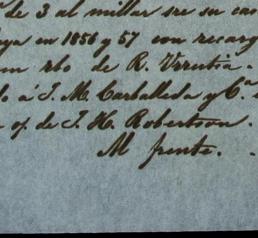 de 3 al millar sre su ca
ya en 1856 y 57 con recarg
rbo de R. Urrutia.
á J. M. Carballeda y Cª
op. de J. H. Robertson.
Al frente.